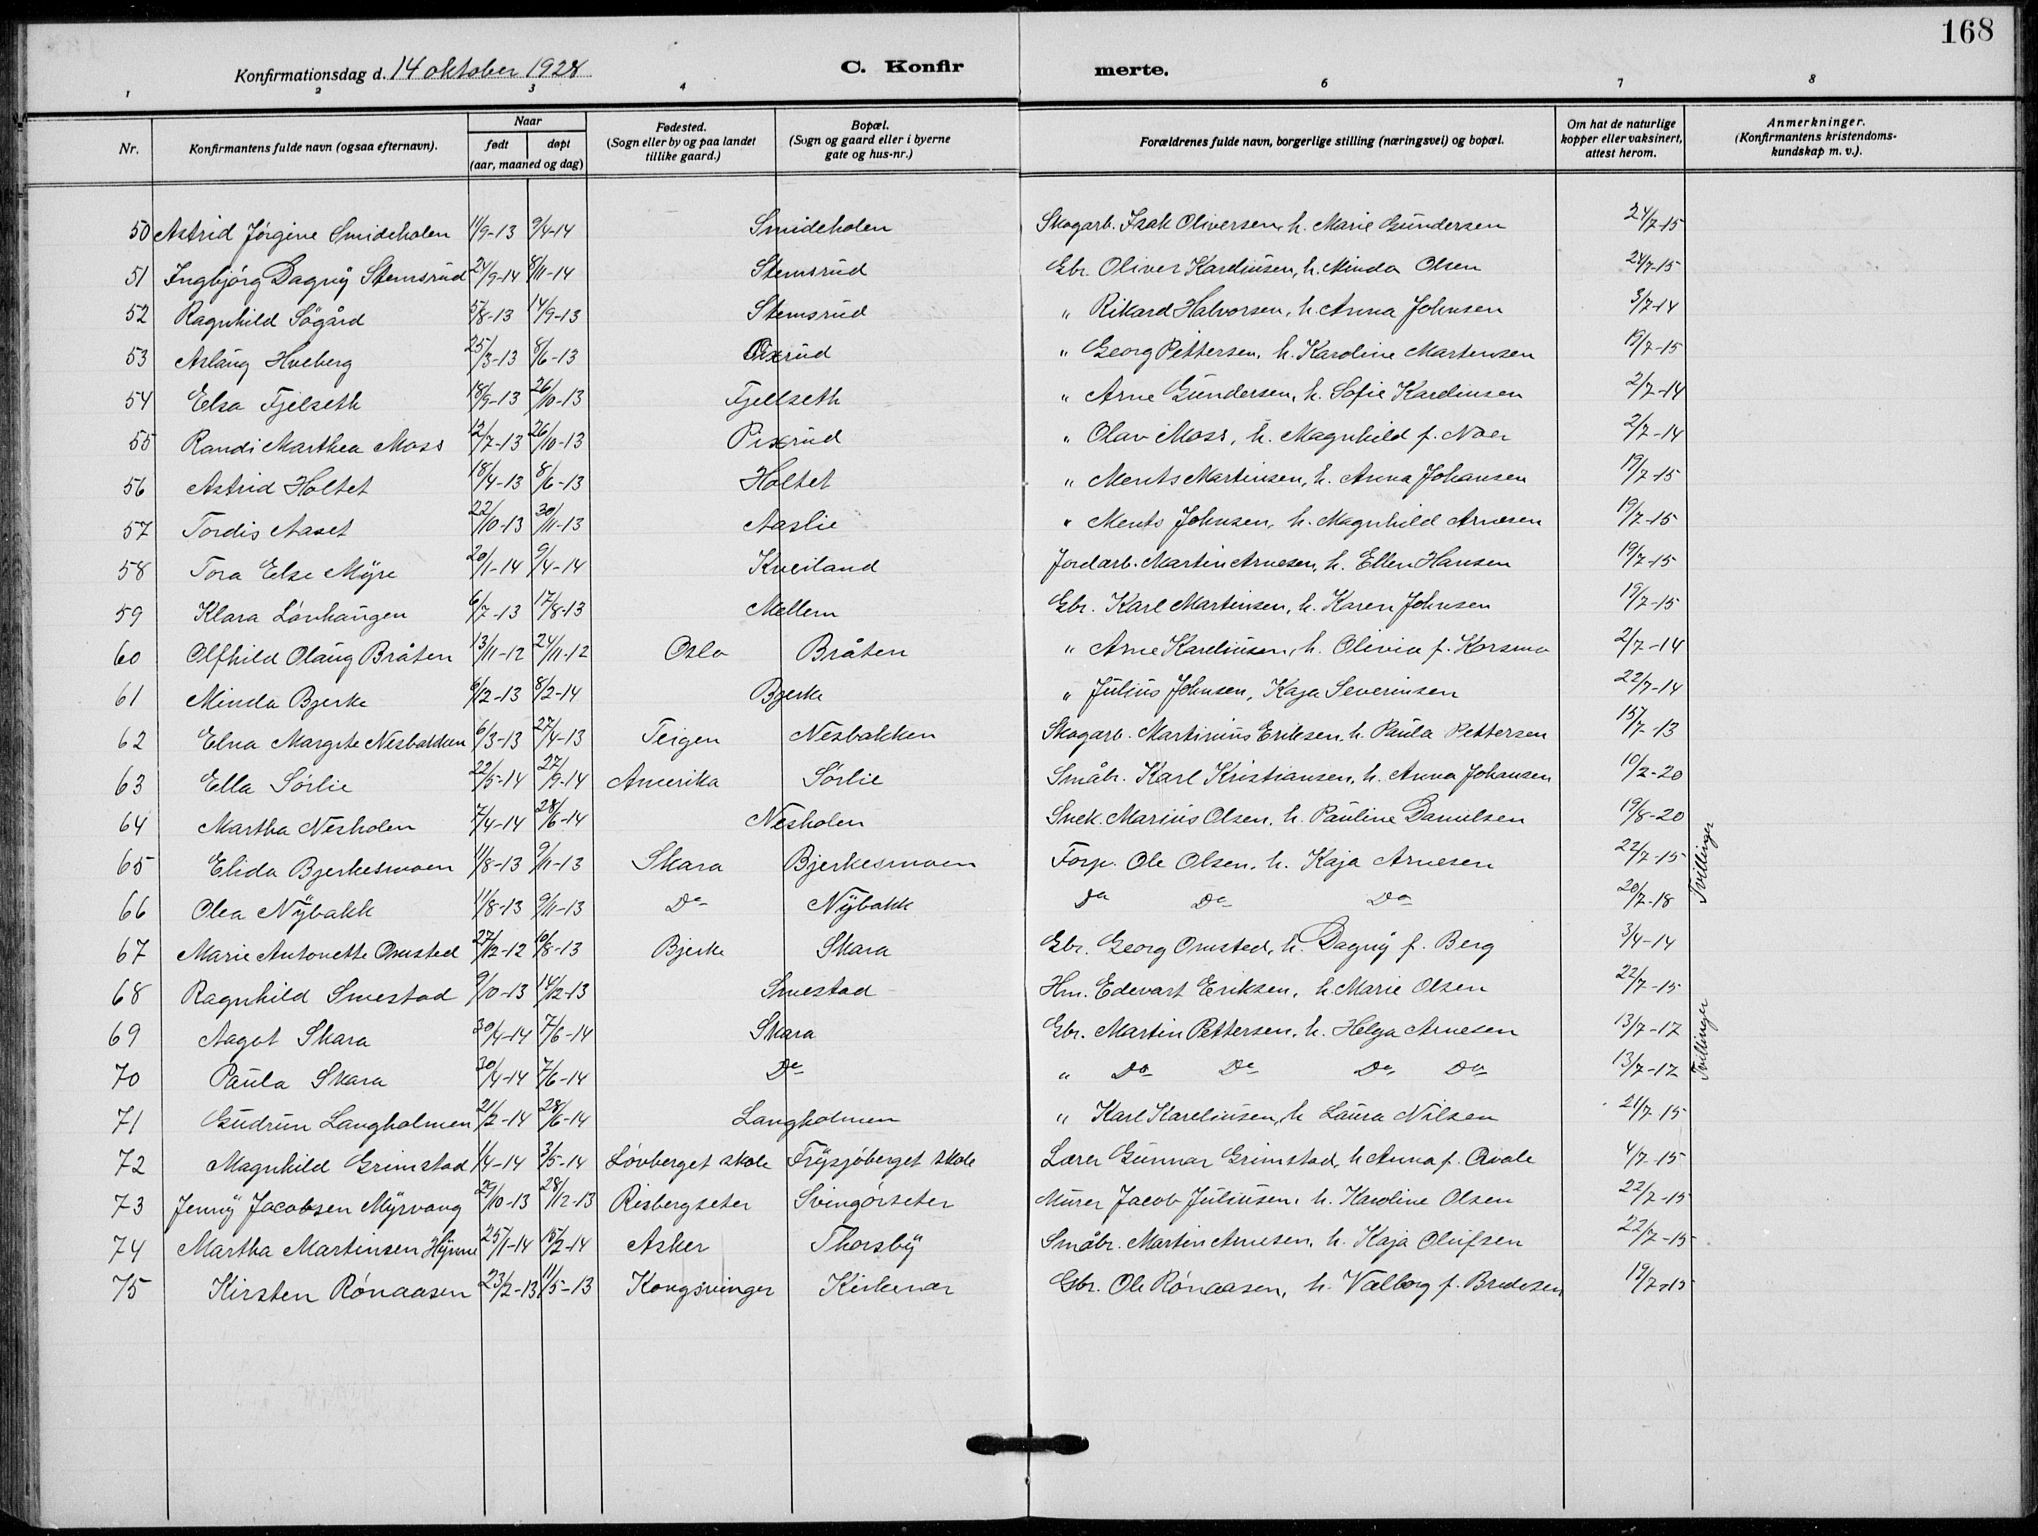 168
Konfirmationsdag d. 14 oktober 1928 C. Konfirmerte.
1 2 3 4 6 7 8
Nr. Konfirmantens fulde navn (ogsaa efternavn). Naar født døpt (aar, maaned og dag) Fødested. (Sogn eller by og paa landet tillike gaard.) Bopæl. (Sogn og gaard eller i byerne gate og hus-nr.) Forældrenes fulde navn, borgerlige stilling (næringsvei) og bopæl. Om hat de naturlige kopper eller vaksinert, attest herom. Anmerkninger. (Konfirmantens kristendoms-kundskap m. v.).
50 Astrid Jørgine Smideholen 11/9-13 9/4-14 Smideholen Skogarb. Isak Oliversen, h. Marie Gundersen 24/7-15
51 Ingbjørg Dagny Stemsrud 24/9-14 8/11-14 Stemsrud Gbr. Oliver Kareliusen, h. Minda Olsen 24/7-15
52 Ragnhild Sögård 5/8-13 14/9-13 Stemsrud " Rikard Halvorsen, h. Anna Johnsen 3/7-14
53 Aslaug Hveberg 25/3-13 8/6-13 Pixrud " Georg Pettersen, h. Karoline Martinsen 19/7-15
54 Elsa Fjelseth 18/9-13 26/10-13 Fjellseth " Arne Gundersen, h. Sofie Kareliusen 2/7-14
55 Randi Marthea Moss 12/7-13 26/10-13 Pixrud " Olav Moss, h. Magnhild f. Noer 2/7-14
56 Astrid Holtet 18/4-13 8/6-13 Holtet " Ments Martinsen, h. Anna Johansen 19/7-15
57 Tordis Aaset 22/10-13 30/11-13 Aaslie " Ments Johnsen, h. Magnhild Arnesen 19/7-15
58 Tora Else Myre 20/1-14 9/4-14 Kveiland Jordarb. Martin Arnesen, h. Ellen Hansen 19/7-15
59 Klara Lövhaugen 6/7-13 17/8-13 Mellem Gbr. Karl Martinsen, h. Karen Johnsen 19/7-15
60 Olfhild Olaug Bråten 13/11-12 24/11-12 Oslo Bråten " Arne Kareliusen, h. Olivia f. Korsmo 2/7-14
61 Minda Bjerke 6/12-13 8/2-14 Bjerke " Julius Johnsen, Kaja Severinsen 22/7-14
62 Elna Margrte Nesbakken 6/3-13 27/4-13 Teigen Nesbakken Skogarb. Martinius Eriksen, h. Paula Pettersen 15/7-13
63 Ella Sørlie 22/5-14 27/9-14 Amerika Sørlie Småbr. Karl Kristiansen, h. Anna Johansen 10/2-20
64 Martha Nesholen 7/4-14 28/6-14 Nesholen Snek. Marius Olsen, h. Pauline Danielsen 19/8-20
65 Elida Bjerkesmoen 11/8-13 9/11-13 Skara Bjerkesmoen Forp. Ole Olsen, h. Kaja Arnesen 22/7-15 Tvillinger
66 Olea Nybakk 11/8-13 9/11-13 Do Nybakk Do Do Do 20/7-18
67 Marie Antonette Onsted 27/12-12 10/8-13 Bjerke Skara Gbr. Georg Onsted, h. Dagny f. Berg 3/4-14
68 Ragnhild Smestad 9/10-13 14/12-13 Smestad Hm. Edevart Eriksen, h. Marie Olsen 22/7-15
69 Aagot Skara 30/4-14 7/6-14 Skara Gbr. Martin Pettersen, h. Helga Arnesen 13/7-17 Tvillinger
70 Paula Skara 30/4-14 7/6-14 Do " Do Do Do Do 13/7-17
71 Gudrun Langholmen 21/2-14 28/6-14 Langholmen " Karl Kareliusen, h Laura Nilsen 21/7-15
72 Magnhild Grimstad 1/4-14 3/5-14 Løvberget skole Frysjøberget skole Lærer Gunnar Grimstad, h Anna f. Qvale 4/7-15
73 Jenny Jacobsen Myrvang 29/10-13 28/12-13 Risbergseter Svingörseter Murer Jacob Juliusen, h. Karoline Olsen 22/7-15
74 Martha Martinsen Hynne 25/1-14 15/2-14 Asker Thorsby Småbr. Martin Arnesen, h. Kaja Olufsen 22/7-15
75 Kirsten Rønaasen 23/2-13 11/5-13 Kongsvinger Kirkenær Gbr. Ole Rønaasen, h. Valborg f. Bredesen 19/7-15